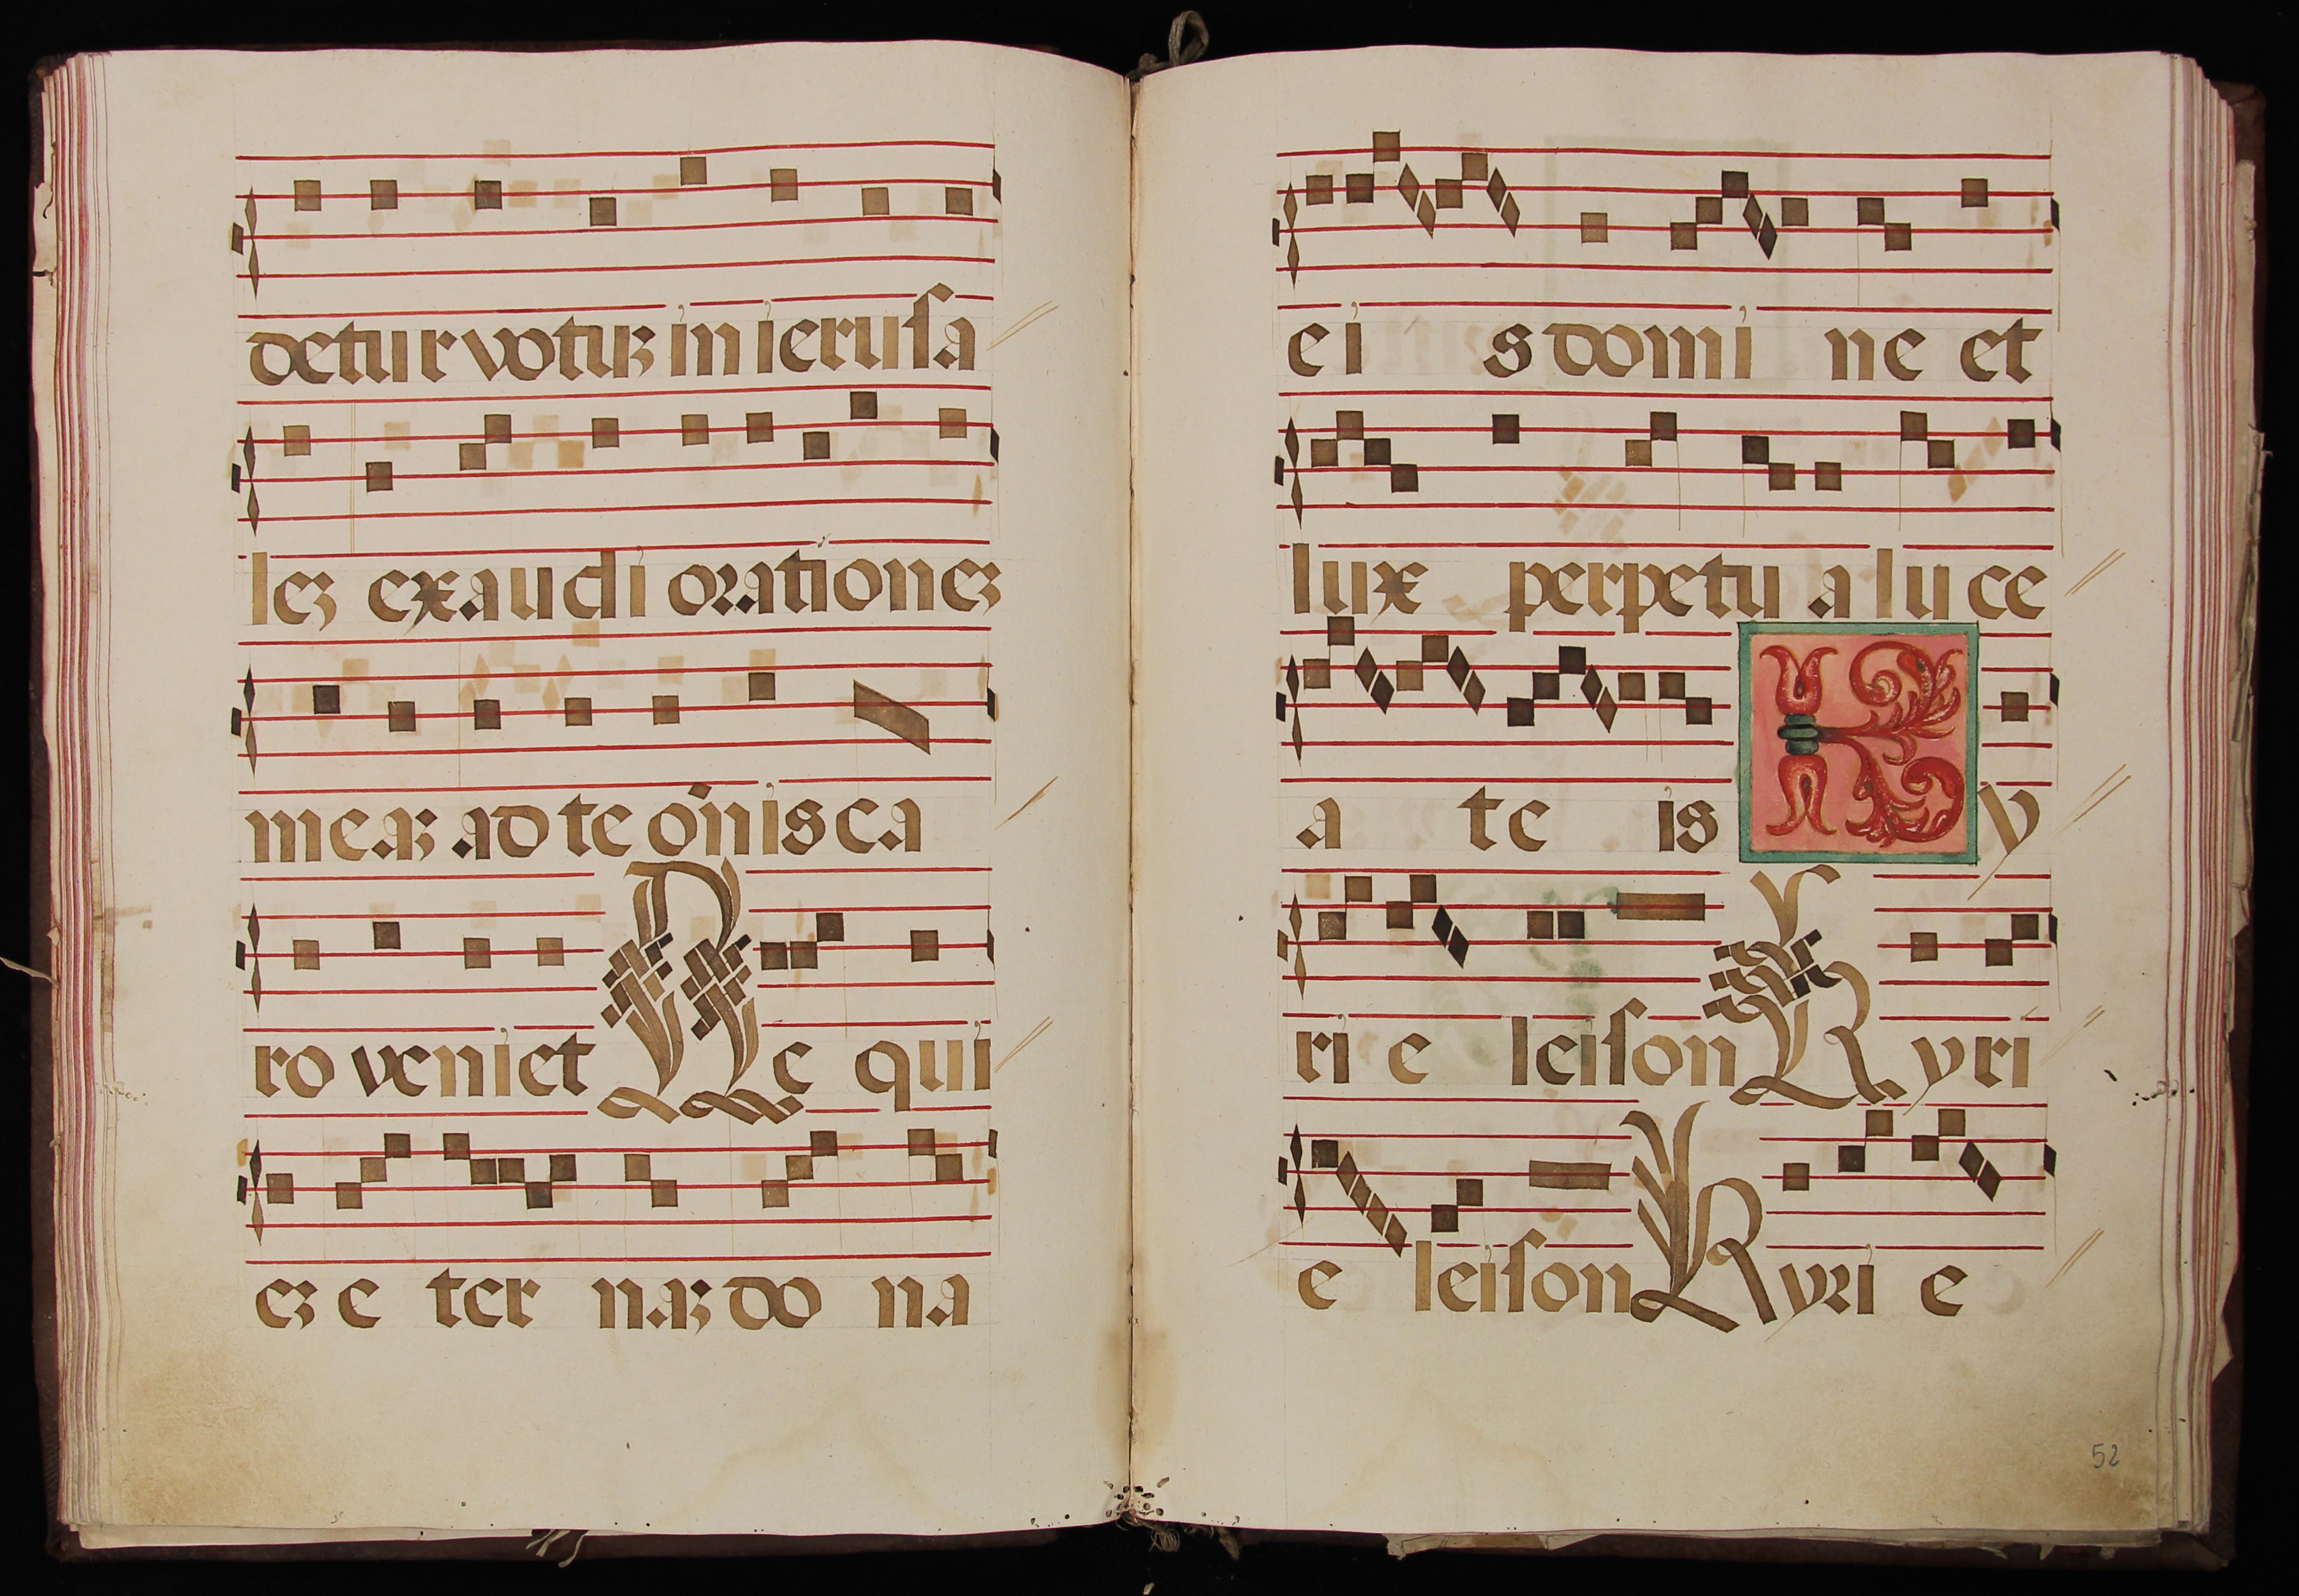 detur votuꝫ in ierusa
leꝫ exaudi orationeꝫ
meaꝫ ad te o͞nis ca
ro veniet Re qui
eꝫ e ter naꝫ do na
ei s domi ne et
lux perpetu a lu ce
a te is Ky
ri e leison Kyri
e leison Kyri e
52